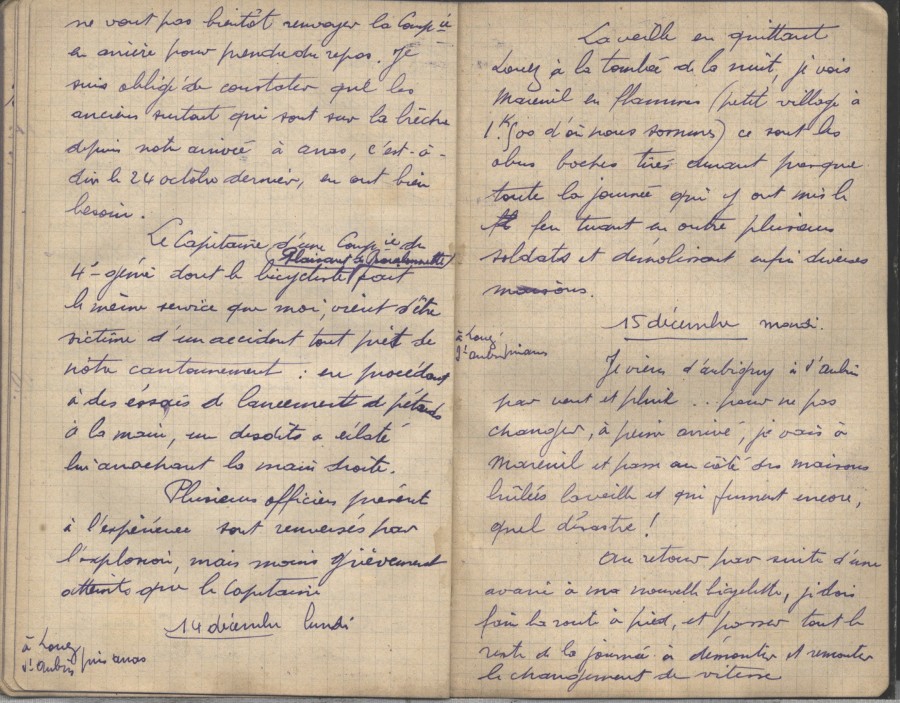 ne vont pas bientôt renvoyer la Compie
en arrière pour prendre du repos. Je
suis obligé de constater que les
anciens surtout qui sont sur la brèche
depuis notre arrivée à Aras, c'est-à-
dire le 24 octobre dernier, en ont bien
besoin.
Le Capitaine d'une Compie du
4e génie dont le bicycliste fait
le même service que moi, vient d'être
victime d'un accident tout près de
notre cantonnement : en procédant
à des essais de lancement de pétards
à la main, un desdits a éclaté
lui arrachant la main droite.
Plusieurs officiers présent
à l'expérience sont renversés par
l'explosion, mais moins grièvement
atteints que le Capitaine
14 décembre lundi
à Louez
St Aubin près Aras
La veille en quittant
Louez à la tombée de la nuit, je vois
Mareuil en flammes (petit village à
1K500 d'où nous sommes) ce sont les
obus boches tirés durant presque
toute la journée qui y ont mis le
feu tuant en outre plusieurs
soldats et démolissant enfin diverses
maisons.
15 décembre mardi.
à Louez
St Aubin près Aras
Je viens d'Aubigny à St Aubin
par vent et pluie ... pour ne pas
changer, à peine arrivé, je vais à
Mareuil et passe au côté des maisons
brûlées la veille et qui fument encore,
quel désastre !
Au retour par suite d'une
avarie à ma nouvelle bicyclette, je dois
faire la route à pied, et passer tout le
reste de la journée à démonter et remonter
le changement de vitesse